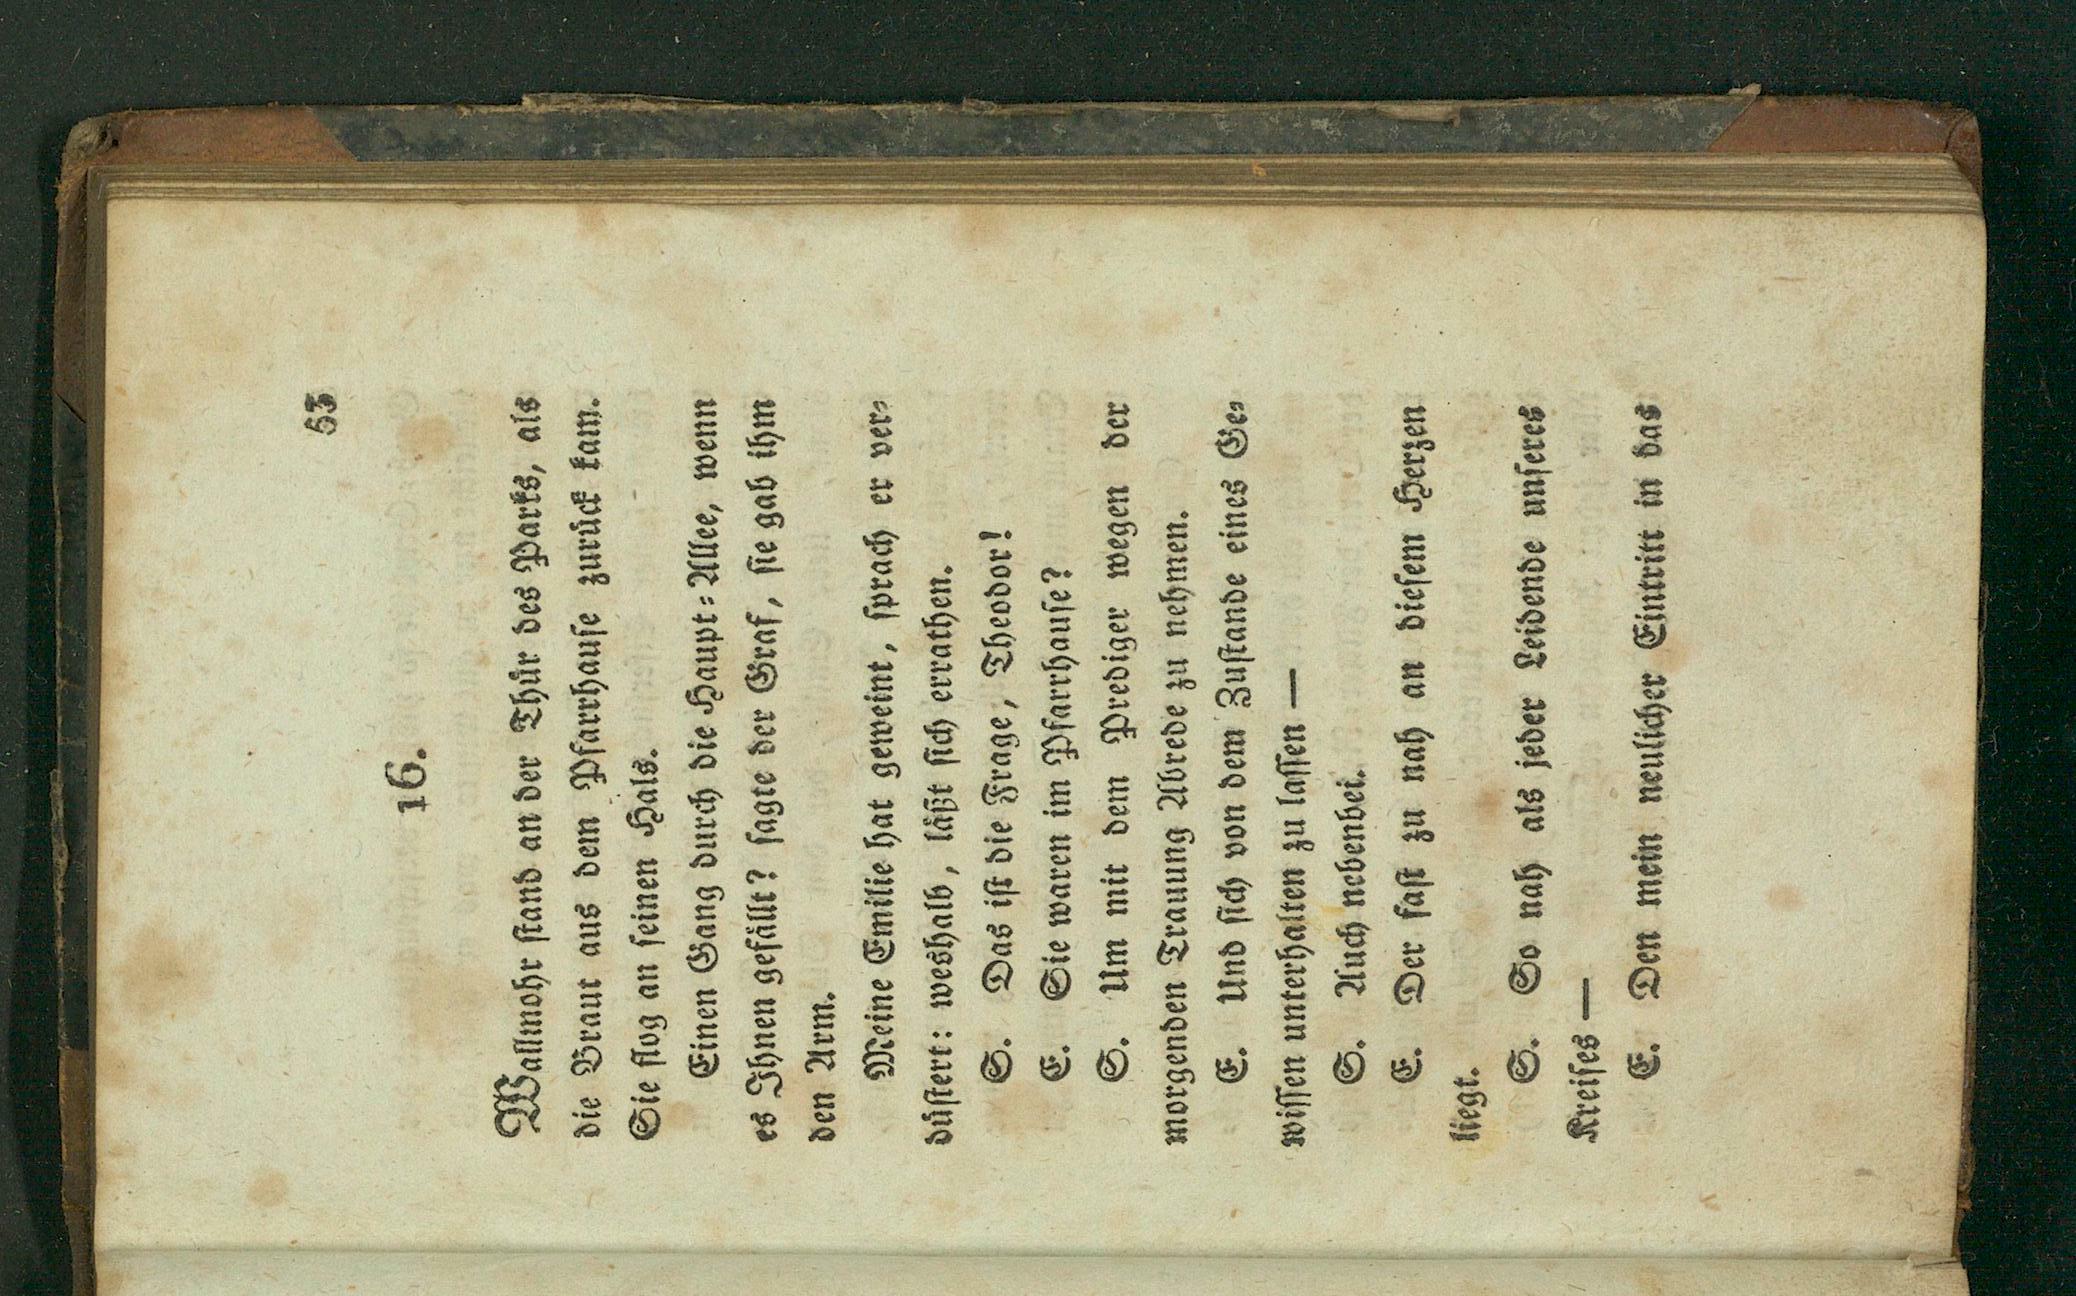 63
16.
Wallmohr ſtand an der Thür des Parks, als
die Braut aus dem Pfarrhauſe zurück kam.
Sie flog an ſeinen Hals.
Einen Gang durch die Haupt-Allee, wenn
es Ihnen gefällt? ſagte der Graf, ſie gab ihm
den Arm.
Meine Emilie hat geweint, ſprach er ver-
düſtert: weshalb, läßt ſich errathen.
S. Das iſt die Frage, Theodor!
E. Sie waren im Pfarrhauſe?
S. Um mit dem Prediger wegen der
morgenden Trauung Abrede zu nehmen.
E. Und ſich von dem Zuſtande eines Ge-
wiſſen unterhalten zu laſſen —
S. Auch nebenbei.
E. Der faſt zu nah an dieſem Herzen
liegt.
S. So nah als jeder Leidende unſeres
Kreiſes —
E. Den mein neulicher Eintritt in das